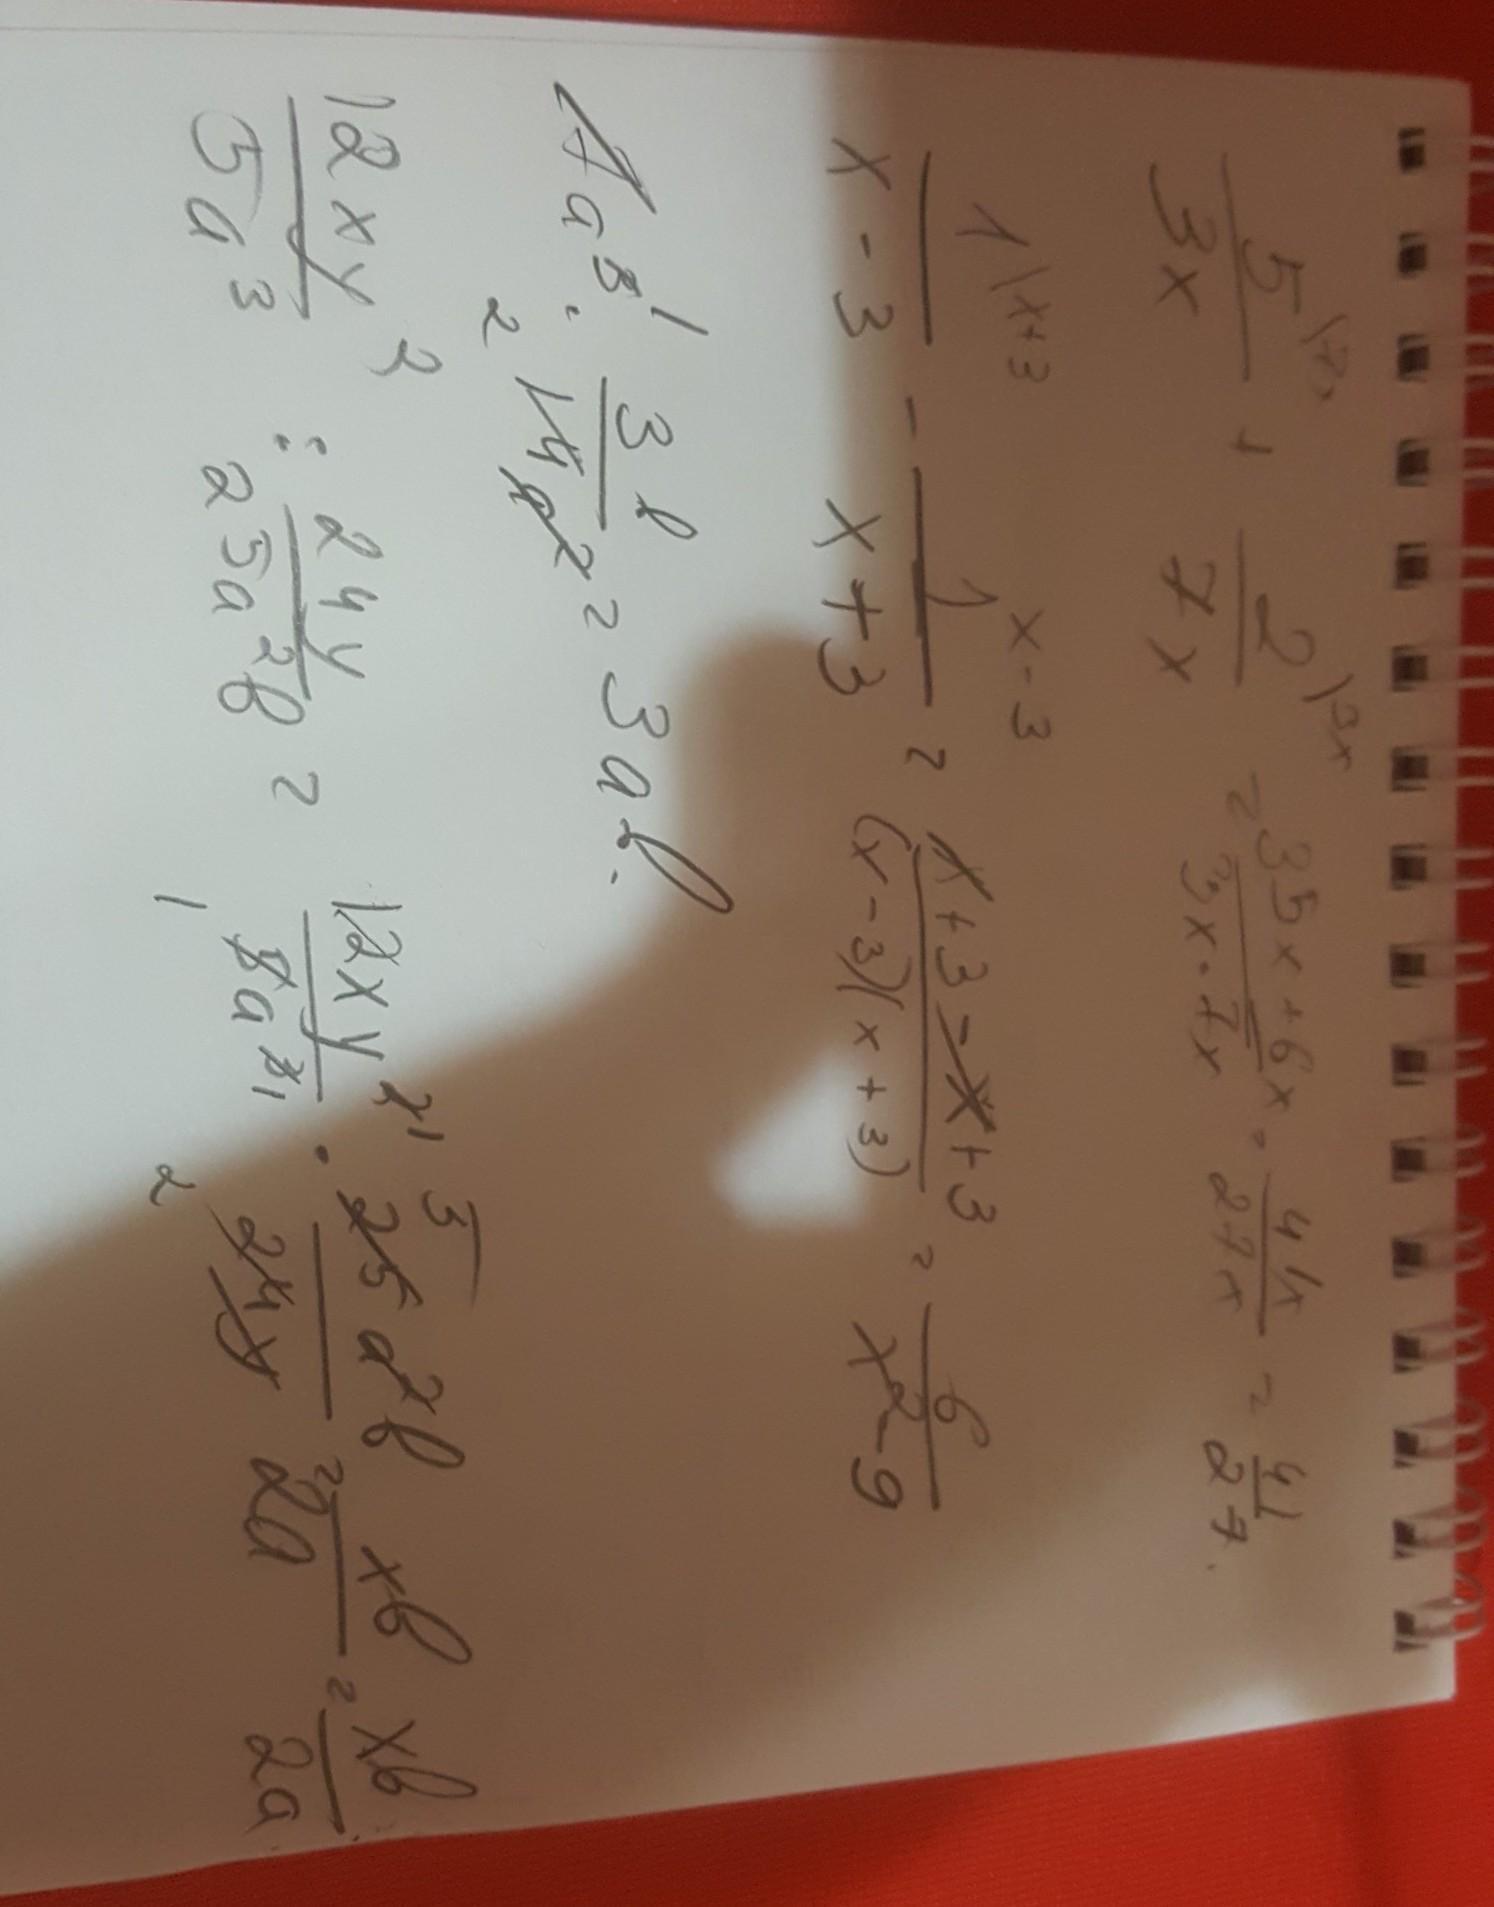 5/3x \7x + 2/7x \3x = 35x+6x/3x·7x = 41x/27x = 41/27.
1/x-3 \x+3 - 1/x+3 x-3 = x+3-x+3/(x-3)(x+3) = 6/x²-9
a · 3b/14a = 3ab.
12xy²/5a³ : 24y/25a²b = 12xy²/5a³ · 25a²b/24y = xb/2a = xb/2a